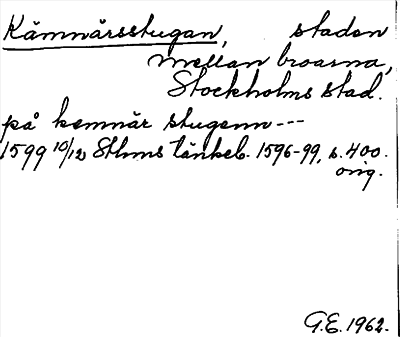 Kämnärsstugan, staden
mellan broarna,
Stockholms stad.
på kemnär stugenn---
1599 10/12 Sthms tänkeb. 1596-99, s. 400.
orig.
G.E. 1962.